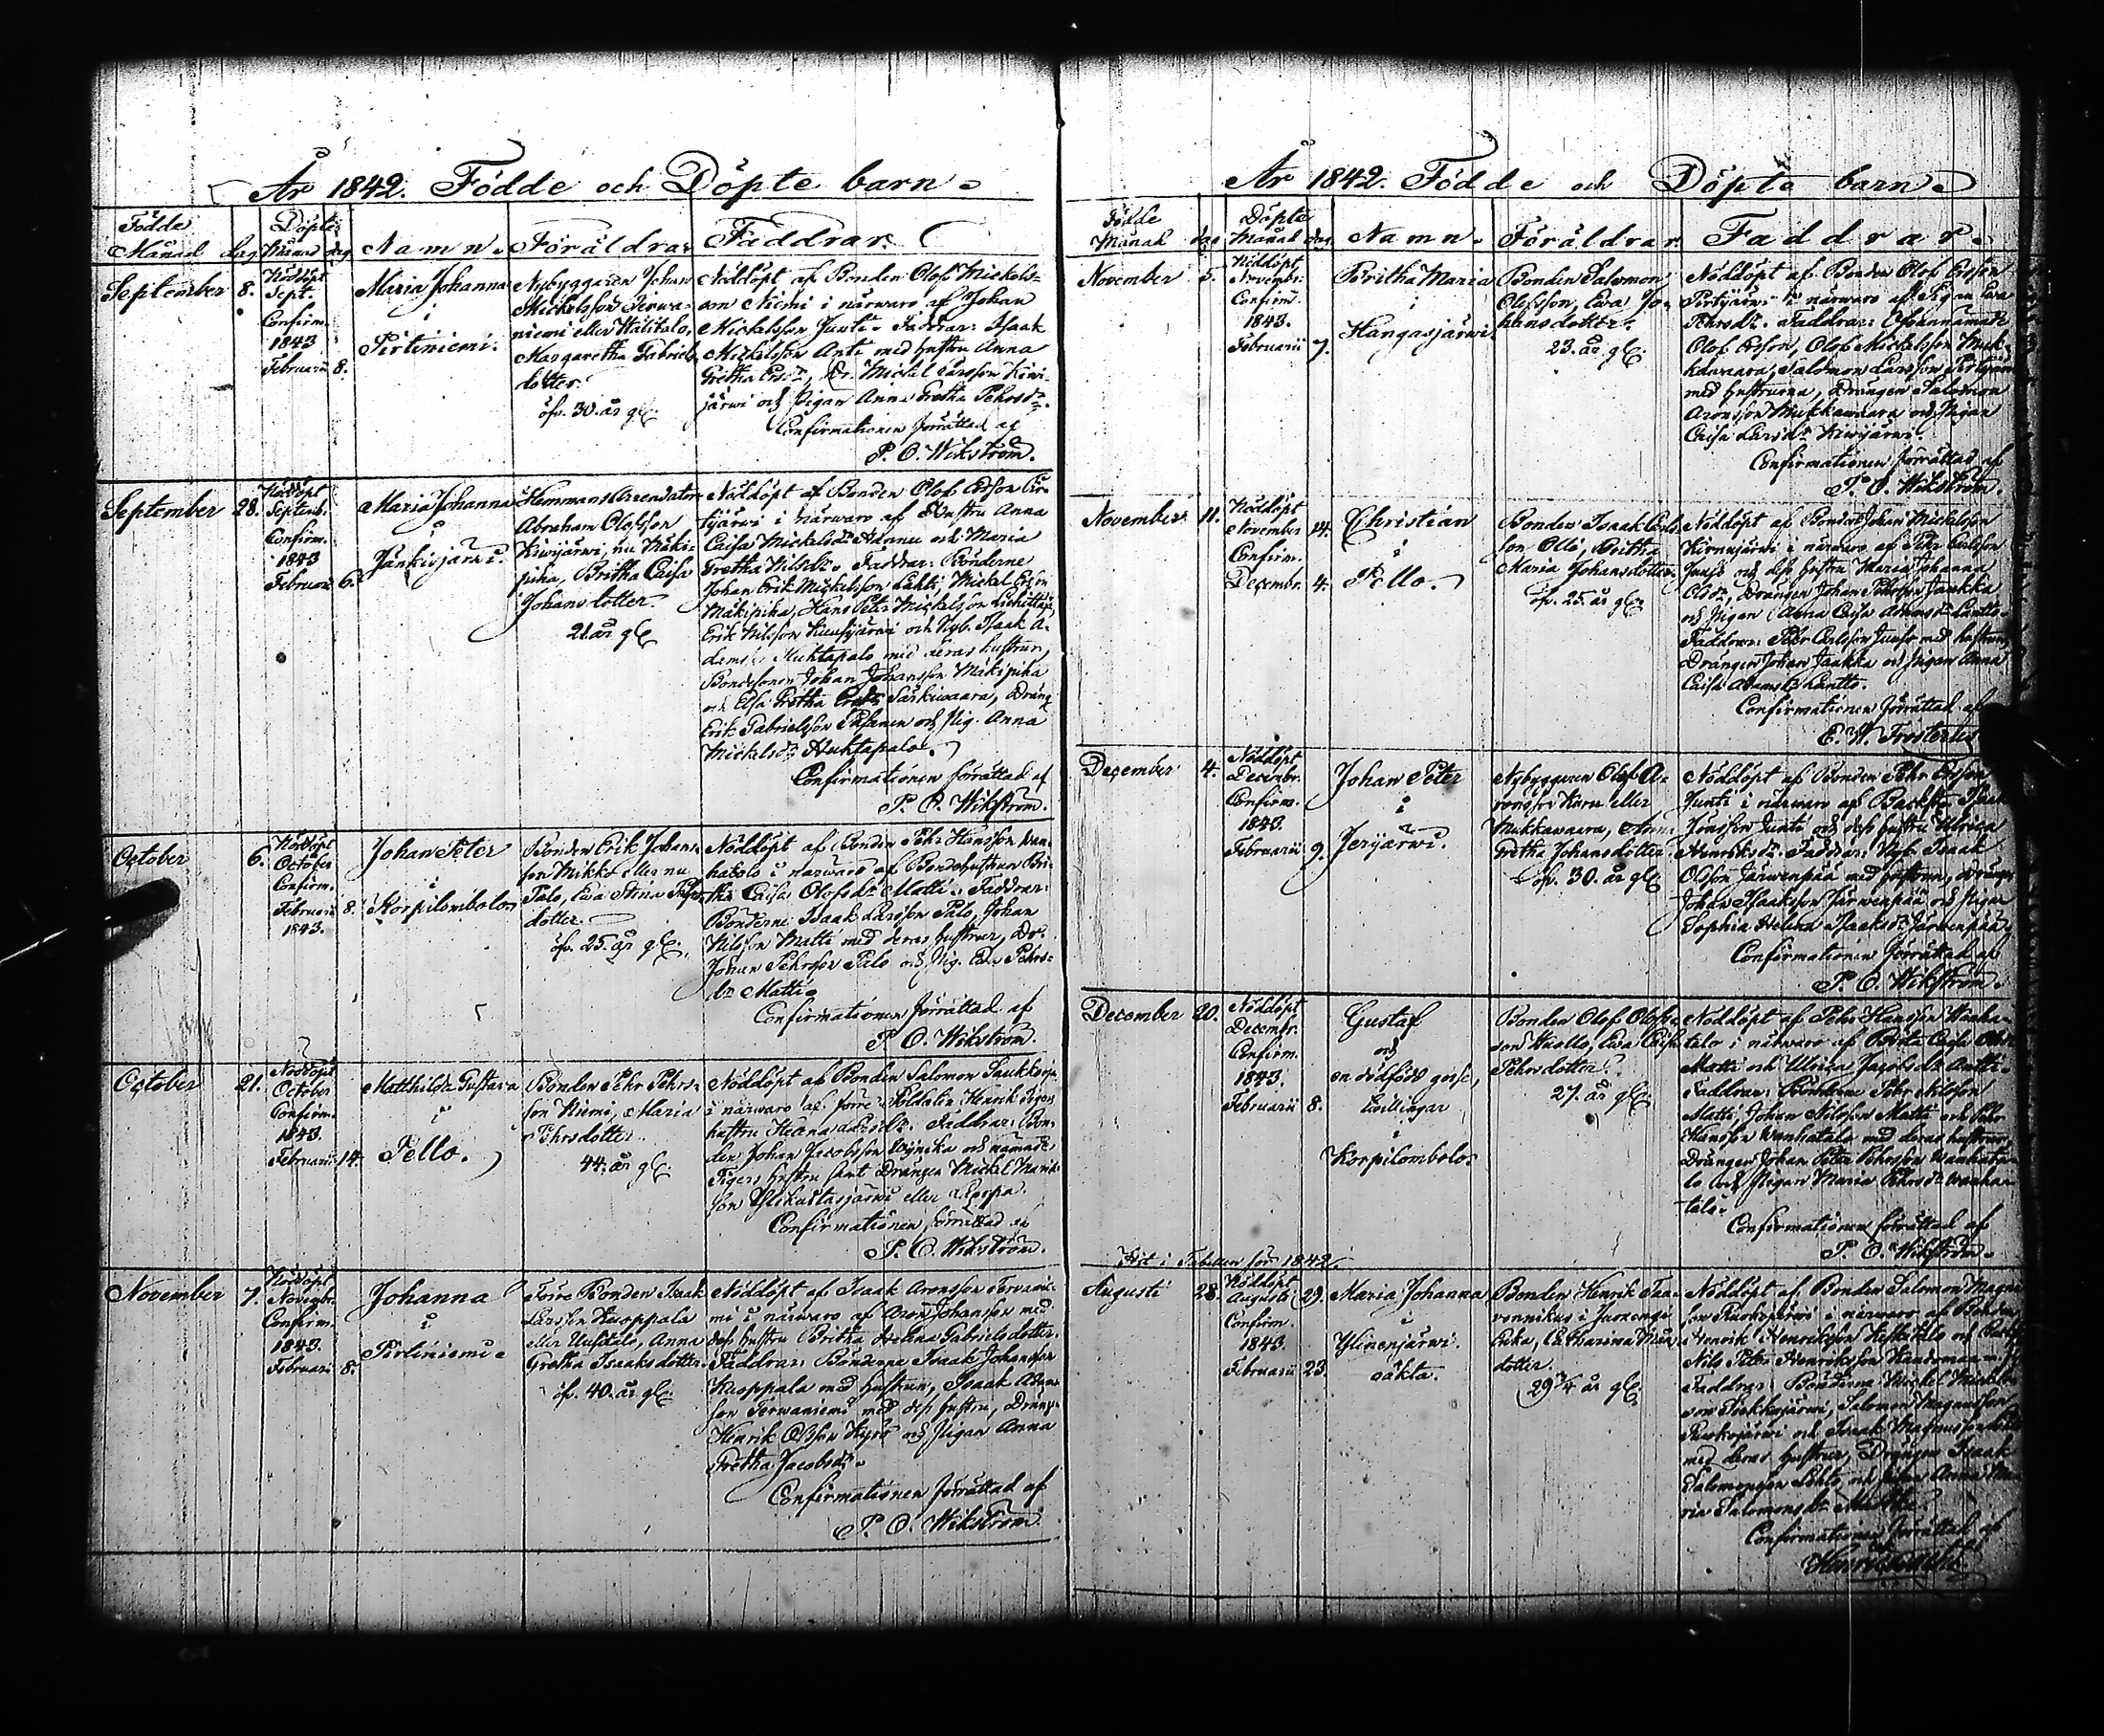 År 1842. Födde och Döpte barn.
Födde
Månad dag
Döpte
Månad dag
Namn. Föräldrar. Faddrar.
September 8.
Nöddöpt
Sept.
Confirm.
1843
Februarii 8.
Maria Johanna
i
Pirtiniemi.
Nybyggaren Johan
Mickelsson
niemi eller
Margaretha Gabriels
dotter.
öfv. 30. år gl.
Nöddöpt af Bonden Olof Mickels-
son Niemi i närwaro af Johan
Mickelsson Junti. Faddrar: Isaak
Mickelsson Anti med hustru Anna
Gretha Ersdr, Dr. Mickel Larsson
järwi och Pigan Anna Gretha Pehrsdr.
Confirmationen förrättad af
P. O. Wikström.
September 28.
Nöddöpt
Septemb.
Confirm.
1843
Februarii 6.
Maria Johanna
i
Jänkisjärwi.
Hemmans Arrendatorn
Abraham Olofsson
Kiwijärwi, nu Mäki-
piha, Britha Caisa
Johansdotter.
21. år gl.
Nöddöpt af Bonden Olof Ersson
i närwaro af Hustru Anna
Caisa Mickelsdr och Maria
Gretha Nilsdr. Faddrar: Bönderne
Johan Erik Mickelsson Lahti, Mickel
Mäkipiha, Hans Petr Mickelsson
Erik Nilsson och Nyb. Isaak A-
damss. Huhtapalo med deras hustrur,
Bondesonen Johan Johansson Mäkipiha
och Elsa Gretha Särkiwaara, Dräng.
Erik Gabrielsson och Pig. Anna
Mickelsdr Huhtapalo.
Confirmationen förrättad af
P. O. Wikström.
October 6.
Nöddöpt
October
Confirm.
Februarii 8.
1843.
Johan Peter
i
Korpilombolo
Bonden Erik Johans-
son Mikko eller nu
Palo, Ewa Stina
dotter.
öfv. 25. år gl.
Nöddöpt af Bonden Pehr Hansson Wan-
hatalo i närwaro af Bondehustrun Bri-
tha Caisa Olofsdr Matti. Faddrar:
Bönderne Isaak Larsson Palo, Johan
Nilsson Matti med deras hustrur, Dr.
Johan Pehrsson Palo och Pig. Ewa Pehrs-
dr Matti.
Confirmationen förrättad af
P. O. Wikström.
October 21.
Nöddöpt
October
Confirm.
1843.
Februarii 14.
Matthilda Gustava
i
Pello.
Bonden Pehr Pehrs-
son Niemi, Maria
Pehrsdotter
44. år gl.
Nöddöpt af Bonden Salomon
i närwaro af förre Soldaten Henrik Tigers
hustru Helena Faddrar: Bon-
den Johan Jacobsson och nämnde
Tigers hustru samt Drängen Mickel
son eller
Confirmationen förrättad af
P. O. Wikström.
November 7.
Nöddöpt
Novembr.
Confirm.
1843.
Februarii 8.
Johanna
i
Pirtiniemi.
Förre Bonden Isaak
Larsson Kuoppala
eller Uusitalo, Anna
Gretha Isaaksdotter.
öf. 40. år gl.
Nöddöpt af Isaak Aronsson Terwanie-
mi i närwaro af Aron Johansson med
dess hustru Britha Helena Gabrielsdotter.
Faddrar: Bönderne Isaak Johansson
Kuoppala med hustrun, Isaak Arons-
son Terwaniemi med dess hustru, Dräng.
Henrik Olsson Kyrö och Pigan Anna
Gretha Jacobsdr.
Confirmationen förrättad af
P. O. Wikström.
År 1842. Födde och Döpta barn.
Födde
Månad dag
Döpte
Månad dag
Namn. Föräldrar. Faddrar.
November 5.
Nöddöpt
Novembr.
Confirm.
1843.
Februarii 7.
Britha Maria
i
Hangasjärwi
Bonden Salomon
Olofsson, Ewa Jo-
hansdotter.
23. år gl.
Nöddöpt af Bonden Olof Ersson
i närwaro af Pigan Ewa
Pehrsdr. Faddrar: Ofwannämnde
Olof Ersson, Olof Mickelsson Muk-
kawaara, Salomon Larsson
med hustrurna, Drängen Salomon
Aronsson Mukkawaara och Pigan
Caisa Larsdr Kiwijärwi.
Confirmationen förrättad af
P. O. Wikström.
November 11.
Nöddöpt
November 14.
Confirm.
Decembr. 4.
Christian
i
Pello.
Bonden Isaak
son Olli, Britha
Maria Johansdotter.
öfv. 25. år gl.
Nöddöpt af Bonden Johan Mickelsson
i närwaro af Pehr Carlsson
Juuso och dess hustru Maria Johanna
Olsdr, Drängen Johan Pehrsson Jaakka
och Pigan Anna Caisa Adamsdr Lantto.
Faddrar: Pehr Carlsson Juuso med hustrun,
Drängen Johan Jaakka och Pigan Anna
Caisa Adamsdr Lantto.
Confirmationen förrättad af
E. W. Frosterus
December 4.
Nöddöpt
Decembr.
Confirm.
1843.
Februarii 9.
Johan Peter
i
Jerijärwi.
Nybyggaren Olof A-
ronsson Karu eller
Mukkawaara, Anna
Gretha Johansdotter.
öfv. 30. år gl.
Nöddöpt af Bonden Pehr Ersson
Junti i närwaro af
Jönsson Junti och dess hustru Ulrica
Henriksdr. Faddrar: Nyb. Isaak
Olsson Järwenpää med hustrun, Dräng.
Johan Isaaksson Järwenpää och Pigan
Sophia Helena Isaaksdr Järwenpää,
Confirmationen förrättad af
P. O. Wikström.
December 20.
Nöddöpt
Decembr.
Confirm.
1843.
Februarii 8.
Gustaf
och
en dödfödd gosse,
twillingar
i
Korpilombolo.
Bonden Olof Olofs-
son Ewa Caisa
Pehrsdotter.
27. år gl.
Nöddöpt af Pehr Hansson Wanha-
talo i närwaro af Britha Caisa
Matti och Ulrica Jacobsdr Antti.
Faddrar: Bönderne Pehr Nilsson
Matti, Johan Nilsson Matti och Pehr
Hansson Wanhatalo med deras hustrur,
Drängen Johan Peter Pehrsson Wanhata-
lo och Pigan Maria Pehrsdr Wanha-
talo.
Confirmationen förrättad af
P. O. Wikström.
i Tabellen för 1842.
Augusti 28.
Nöddöpt
Augusti 29.
Confirm.
1843.
Februarii 23.
Maria Johanna
i
Ylinenjärwi.
oäkta.
Bonden Henrik Taa-
wonnikus i Juoxengi
Catharina
dotter.
29 3/4 år gl.
Nöddöpt af Bonden Salomon Magnus-
son Ruokojärwi i närwaro af Bonden
Henrik Henriksson och
Nils Peter Henriksson
Faddrar: Bönderne Mickel Mickels-
son Salomon Magnusson
Ruokojärwi och Isaak Magnusson
med deras hustrur, Drängen Isaak
Salomonsson och Pigan Anna Ma-
ria Salomonsdr
Confirmationen förrättad af